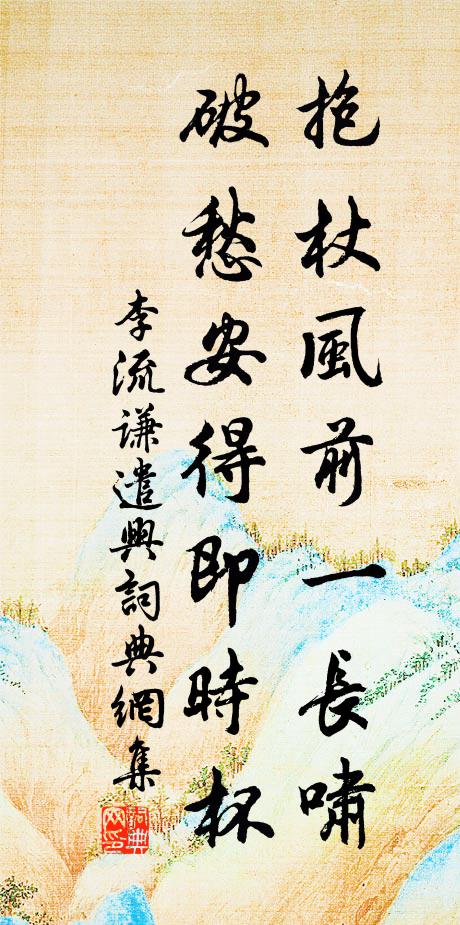 抱杖風前一長嘯
破愁安得即時杯
李流謙遣興詞典網集
詞典網印